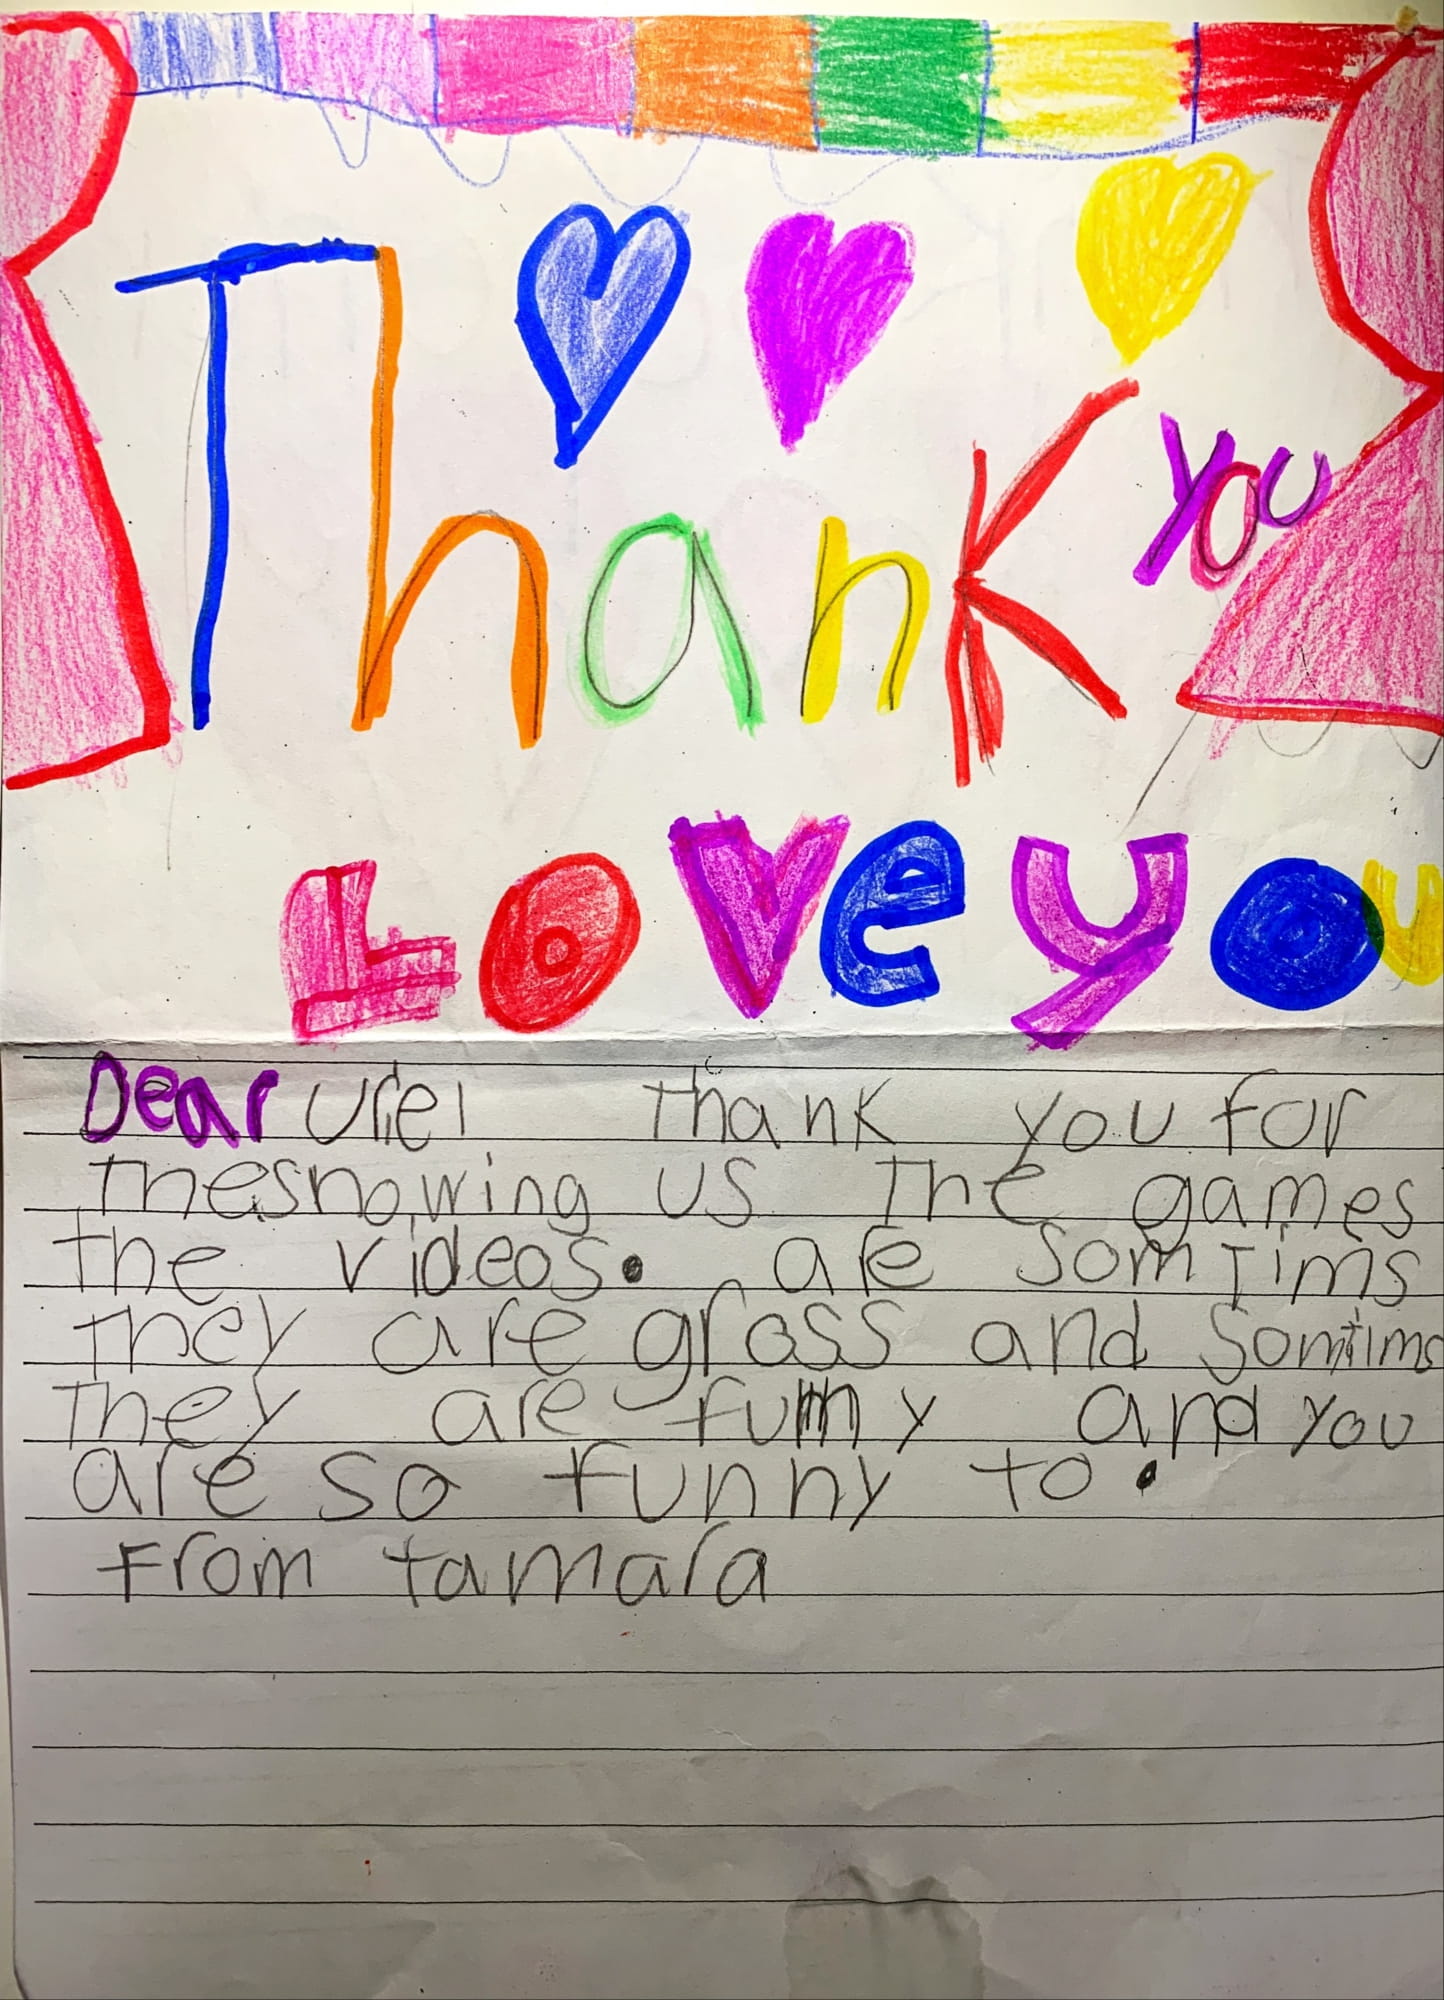 Thank you
Love you
Dear Uriel Thank you for
Thesnowing us The games
the videos. are somTims
They are gross and Somtims
They are funny and you
are so funny to.
From tamara